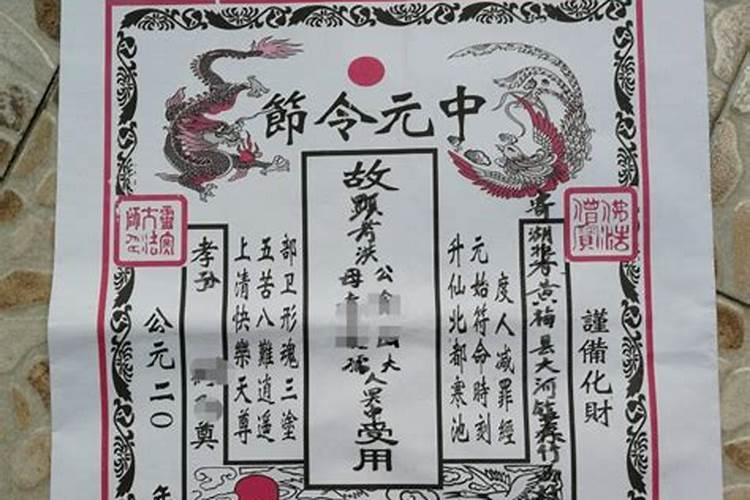 中元令節
佛法僧寶
謹備化財
寄湖北黄梅县大河镇
度人减罪經
元始符命時刻
升仙北都寒池
故顯考洪公大人
母孺人
受用
部卫形魂三塗
五苦八難逍遥
上清快樂天尊
孝孙
奠
靈寶大法師印
公元二〇 年